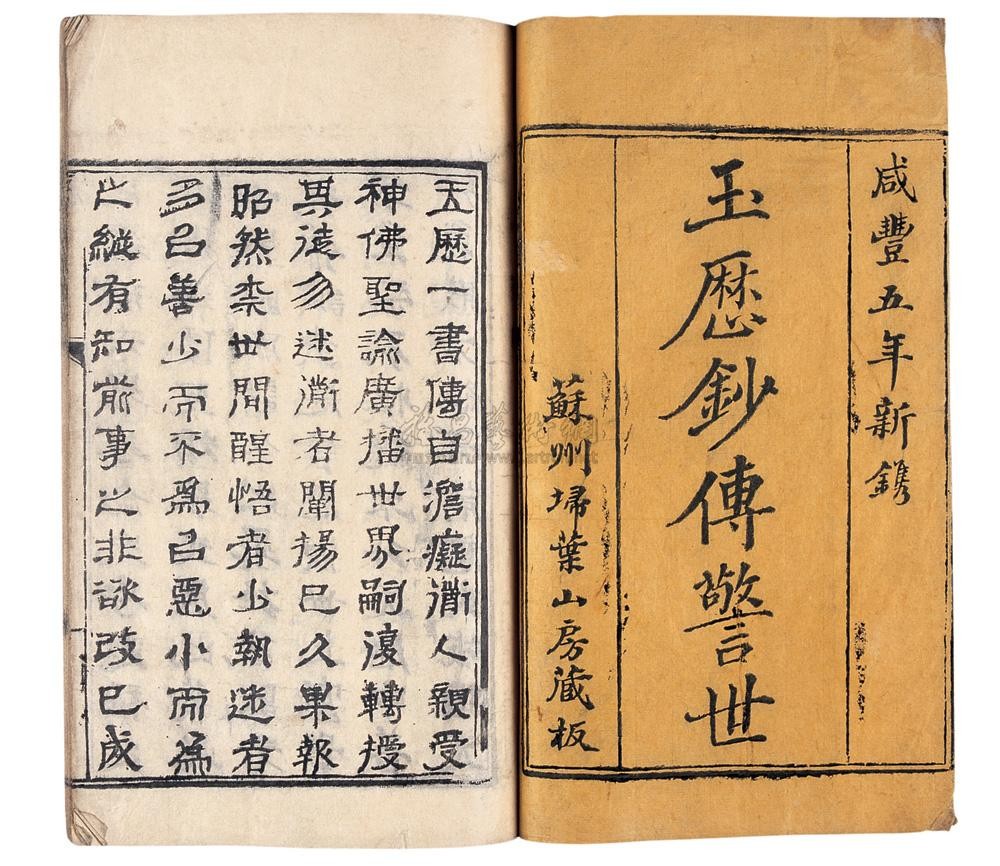 咸豐五年新鐫
玉厯鈔傳警世
蘇州埽葉山房藏板
玉歷一書傳自澹癡衜人親受
神佛聖諭廣播世界嗣復轉授
其徒勿迷衜者闡揚已久果報
昭然柰世間醒悟者少執迷者
多㠯善少而不爲㠯惡小而爲
之縱有知前事之非欲改已成